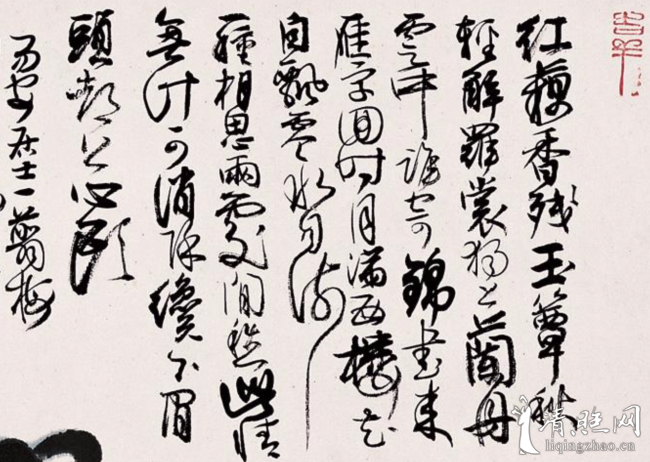 红藕香残玉簟秋
輕解羅裳独上蘭舟
雲中誰寄錦書来
雁字回时月滿西樓花
自飄零水自流
一種相思兩處閒愁此情
無計可消除纔下眉
頭却上心頭
易安居士一翦梅
清照网
liqingzhao.cn